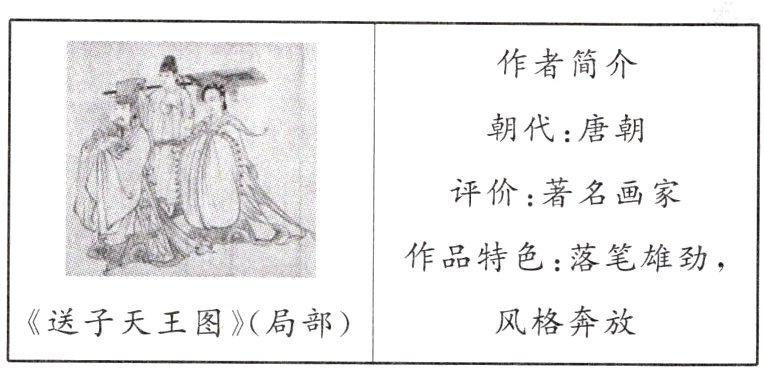 《送子天王图》(局部)
作者简介
朝代:唐朝
评价:著名画家
作品特色:落笔雄劲,
风格奔放